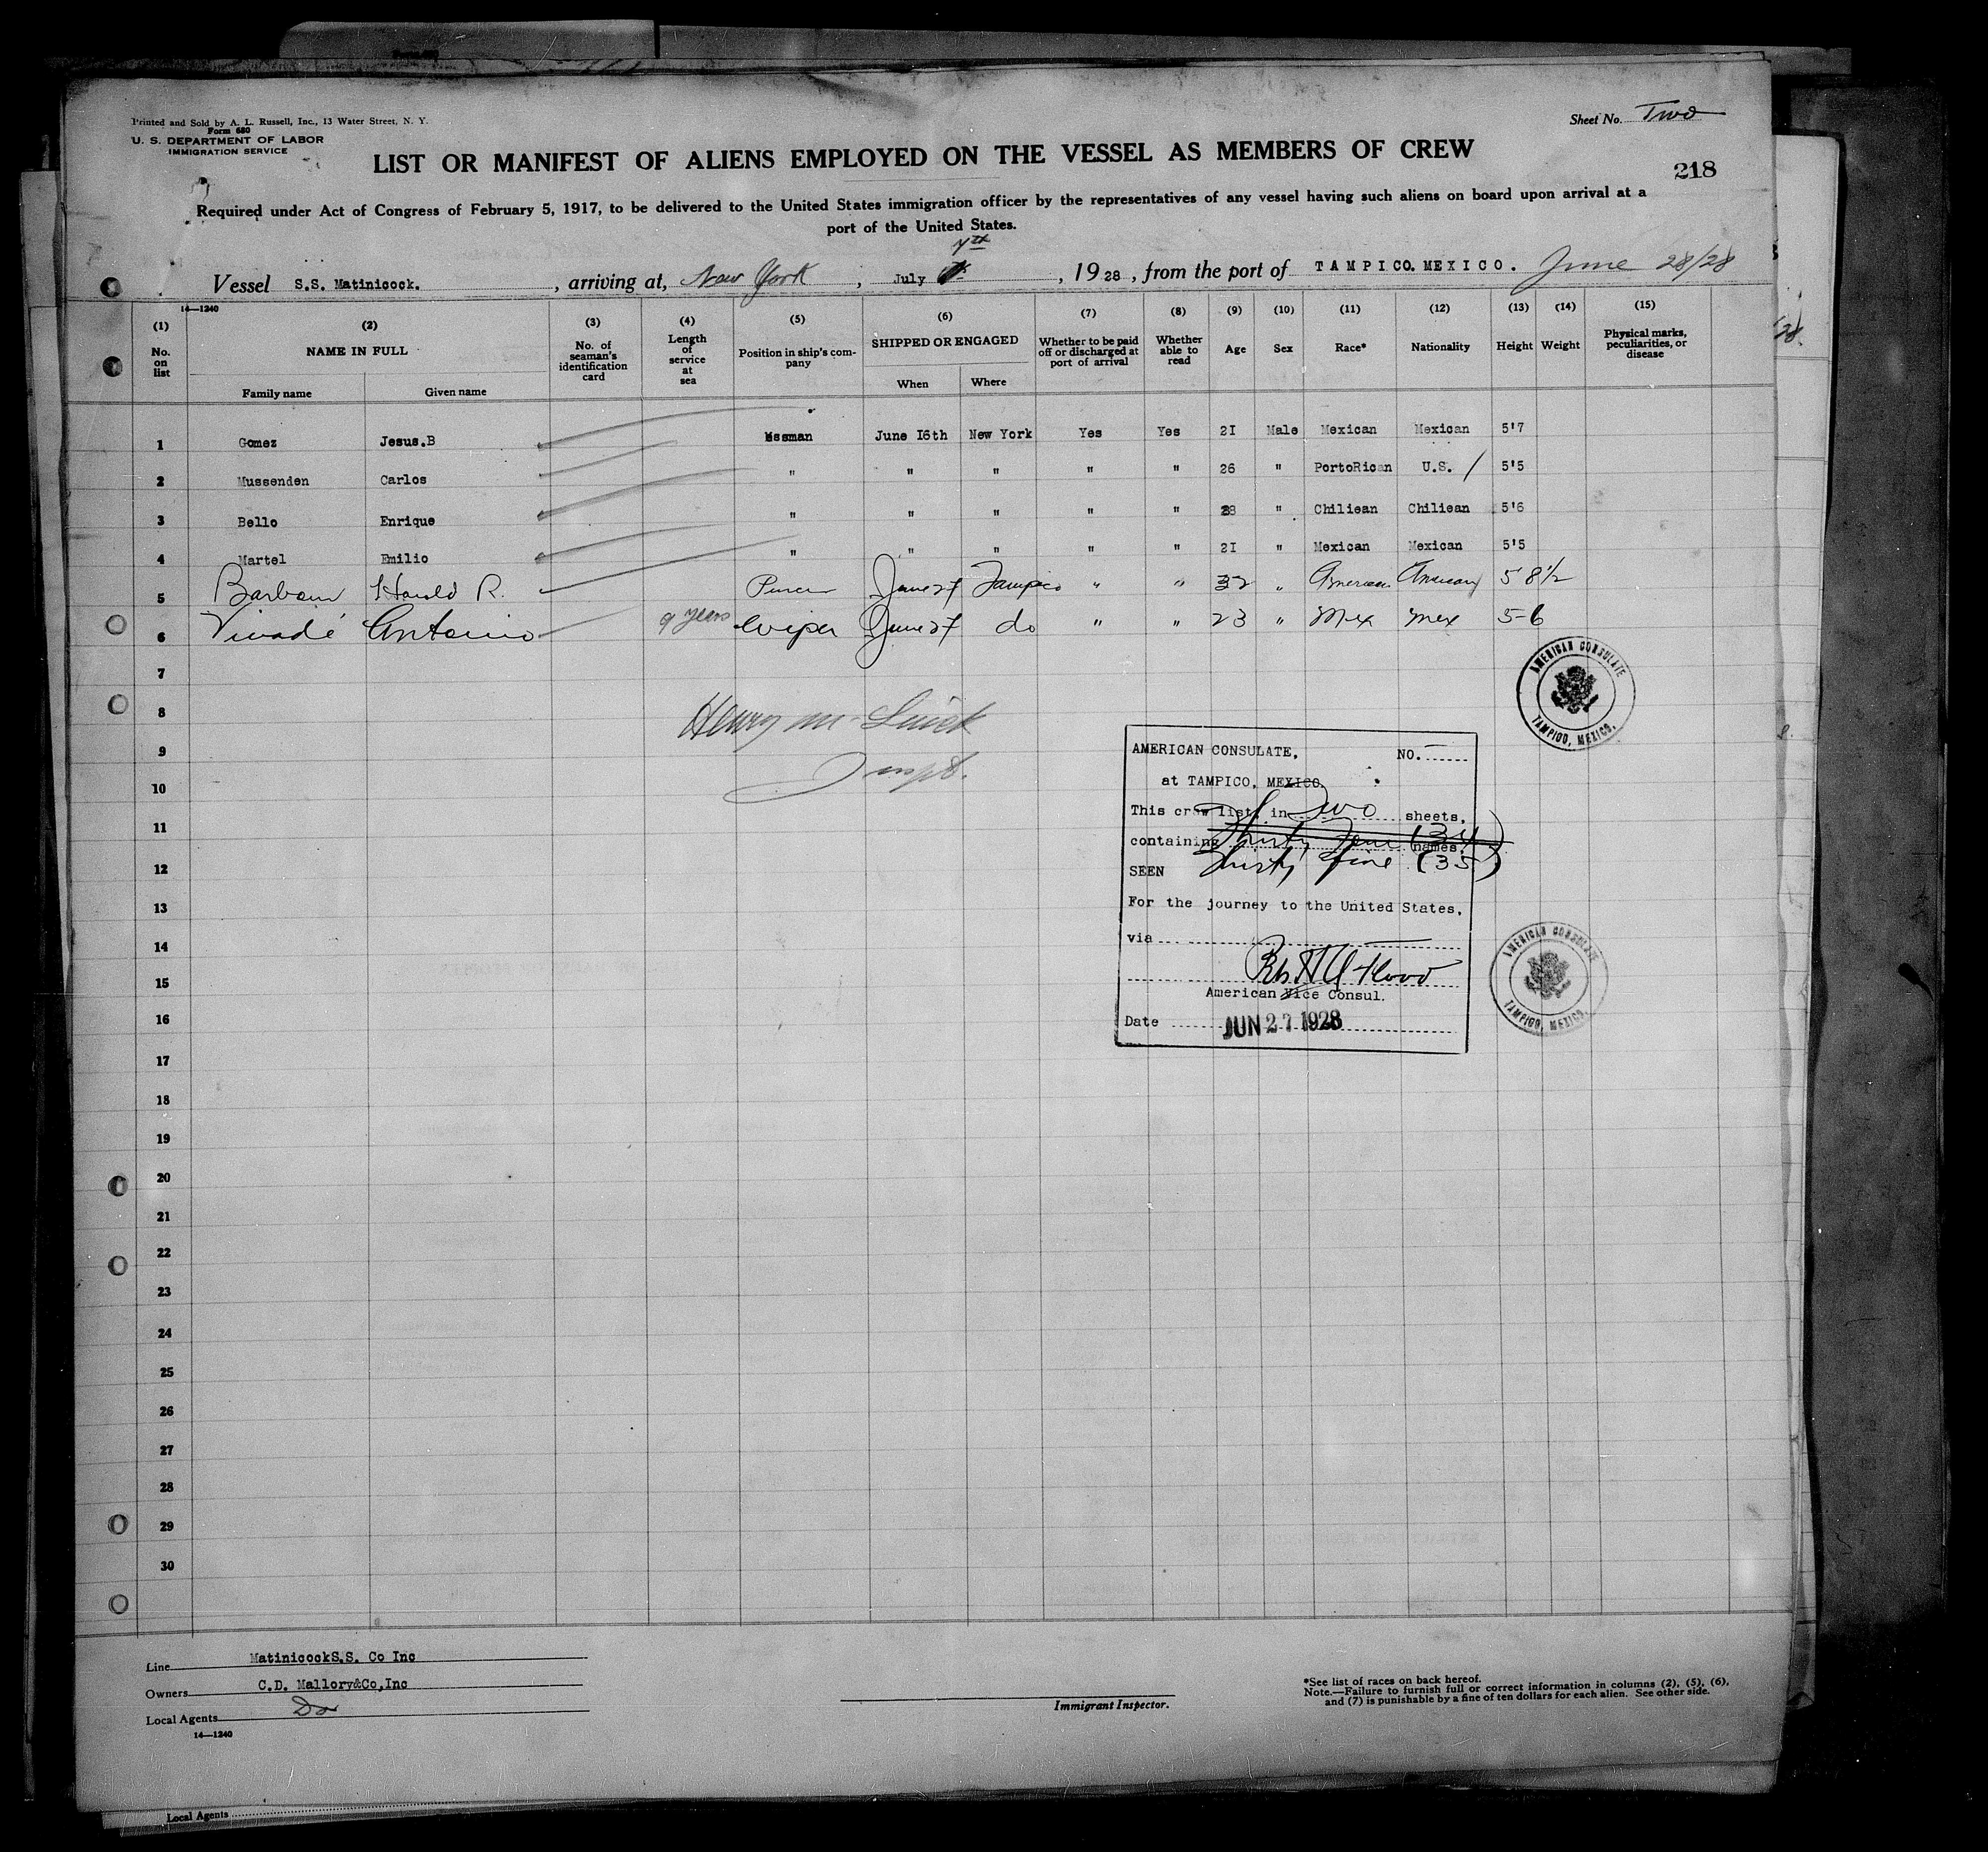 Printed and Sold by A. L. Russell, Inc., 13 Water Street, N. Y.
Form 680
U. S. DEPARTMENT OF LABOR
IMMIGRATION SERVICE
Sheet No. Two
LIST OR MANIFEST OF ALIENS EMPLOYED ON THE VESSEL AS MEMBERS OF CREW
218
Required under Act of Congress of February 5, 1917, to be delivered to the United States immigration officer by the representatives of any vessel having such aliens on board upon arrival at a
port of the United States.
7th
Vessel S.S. Matinicock. , arriving at, New York , July , 1928 , from the port of TAMPICO. MEXICO. June 28/28
14—1240
(1) (2) (3) (4) (5) (6) (7) (8) (9) (10) (11) (12) (13) (14) (15)
No. on list
NAME IN FULL
Family name Given name
No. of seaman's identification card
Length of service at sea
Position in ship's company
SHIPPED OR ENGAGED
When Where
Whether to be paid off or discharged at port of arrival
Whether able to read
Age
Sex
Race*
Nationality
Height
Weight
Physical marks, peculiarities, or disease
1 Gomez Jesus.B Messman June I6th New York Yes Yes 2I Male Mexican Mexican 5'7
2 Mussenden Carlos " " " " " 26 " PortoRican U.S. / 5'5
3 Bello Enrique " " " " " " Chiliean Chiliean 5'6
4 Martel Emilio " " " " " 2I " Mexican Mexican 5'5
5 Harold R. June 27 Tampico " " 32 " American American 5 8 1/2
6 Antonio 9 years Wiper June 27 do " " 23 " Mex Mex 5-6
7
8
Henry
9
10
Insp.
11
12
13
14
15
16
17
18
19
20
21
22
23
24
25
26
27
28
29
30
AMERICAN CONSULATE
TAMPICO, MEXICO.
AMERICAN CONSULATE, NO. —
at TAMPICO, MEXICO.
This crew list, in Two sheets,
containing Thirty Four (34) names,
SEEN Thirty five (35)
For the journey to the United States,
via
American Vice Consul.
Date JUN 27 1928
AMERICAN CONSULATE
TAMPICO, MEXICO.
Line MatinicockS.S. Co Inc
Owners C.D. Mallory&Co,Inc
Local Agents Do
14—1240
Immigrant Inspector.
*See list of races on back hereof.
Note.—Failure to furnish full or correct information in columns (2), (5), (6),
and (7) is punishable by a fine of ten dollars for each alien. See other side.
Local Agents